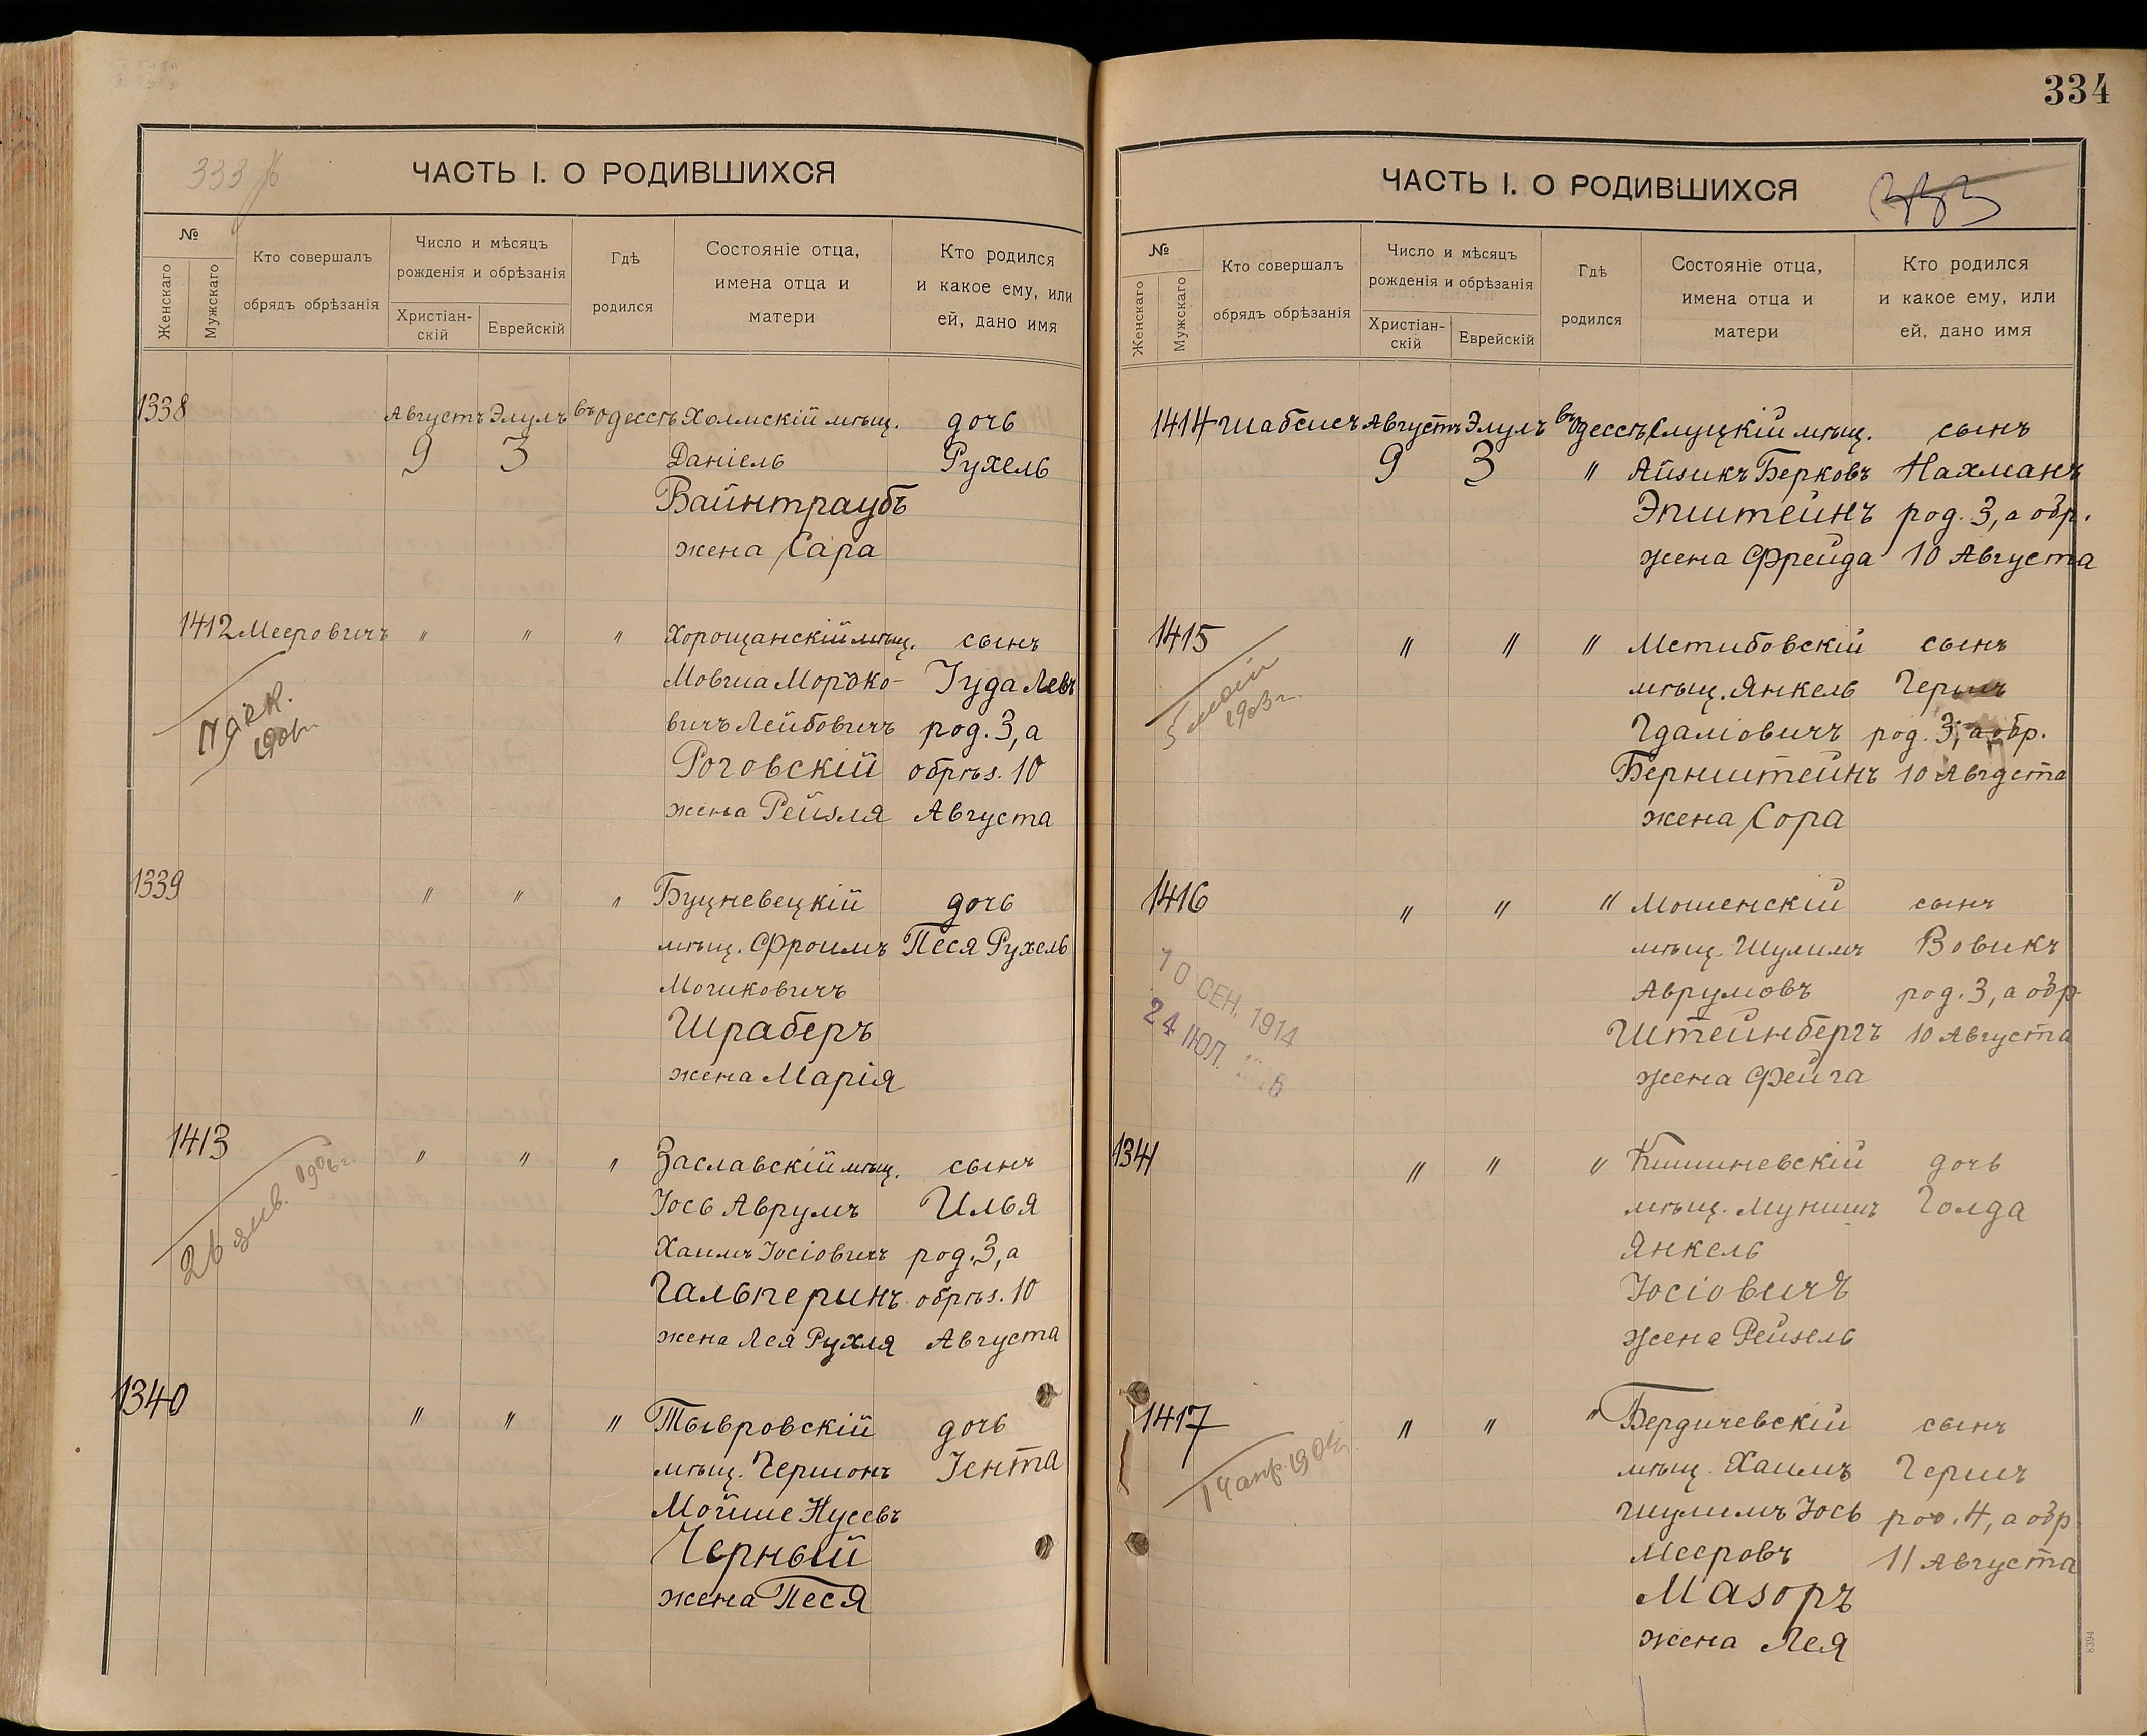 333 об
ЧАСТЬ I. О РОДИВШИХСЯ
№
Женскаго
Мужскаго
Кто совершалъ
обрядъ обрѣзанія
Число и мѣсяцъ
рожденія и обрѣзанія
Христіан-
скій
Еврейскій
Гдѣ
родился
Состояніе отца,
имена отца и
матери
Кто родился
и какое ему, или
ей, дано имя
1338 Августъ Элулъ въ Одессѣ Холмскій мѣщ. дочь
9 3 Даніель Рухель
Вайнтраубъ
жена Сара
1412 Мееровичъ " " " Хорощанскій мѣщ. сынъ
Мовша Мордко- Іуда Левъ
вичъ Лейбовичъ род. 3, а
Роговскій обрѣз. 10
жена Рейзля Августа
1339 " " " Буцневецкій дочь
мѣщ. Фроимъ Песя Рухель
Мошковичъ
Шраберъ
жена Марія
1413 " " " Заславскій мѣщ. сынъ
26 янв. 1906 г.
Іось Аврумъ Илья
Хаимъ Іосіовичъ род. 3, а
Гальперинъ обрѣз. 10
жена Лея Рухля Августа
1340 " " " Тывровскій дочь
мѣщ. Гершонъ Іента
Мойше Нусевъ
Черный
жена Песя
334
ЧАСТЬ I. О РОДИВШИХСЯ
333
№
Женскаго
Мужскаго
Кто совершалъ
обрядъ обрѣзанія
Число и мѣсяцъ
рожденія и обрѣзанія
Христіан-
скій
Еврейскій
Гдѣ
родился
Состояніе отца,
имена отца и
матери
Кто родился
и какое ему, или
ей, дано имя
1414 Шабсисъ Августъ Элулъ въ Одессѣ Слуцкій мѣщ. сынъ
9 3 " Айзикъ Берковъ Нахманъ
Эпштейнъ род. 3, а обр.
жена Фрейда 10 Августа
1415 " " " Метибовскій сынъ
1903 г.
мѣщ. Янкель Гершъ
Гдаліовичъ род. 3, а обр.
Бернштейнъ 10 Августа
жена Сора
1416 " " " Мошенскій сынъ
мѣщ. Шулимъ Вовикъ
Аврумовъ род. 3, а обр.
Штейнбергъ 10 Августа
жена Фейга
10 СЕН. 1914
24 ІЮЛ.
1341 " " " Кишиневскій дочь
мѣщ. Мунишъ Голда
Янкель
Іосіовичъ
жена Рейзель
1417 " " " Бердичевскій сынъ
14 апр.
мѣщ. Хаимъ Гершъ
Шулимъ Іось род. 4, а обр.
Мееровъ 11 Августа
Мазоръ
жена Лея
8394